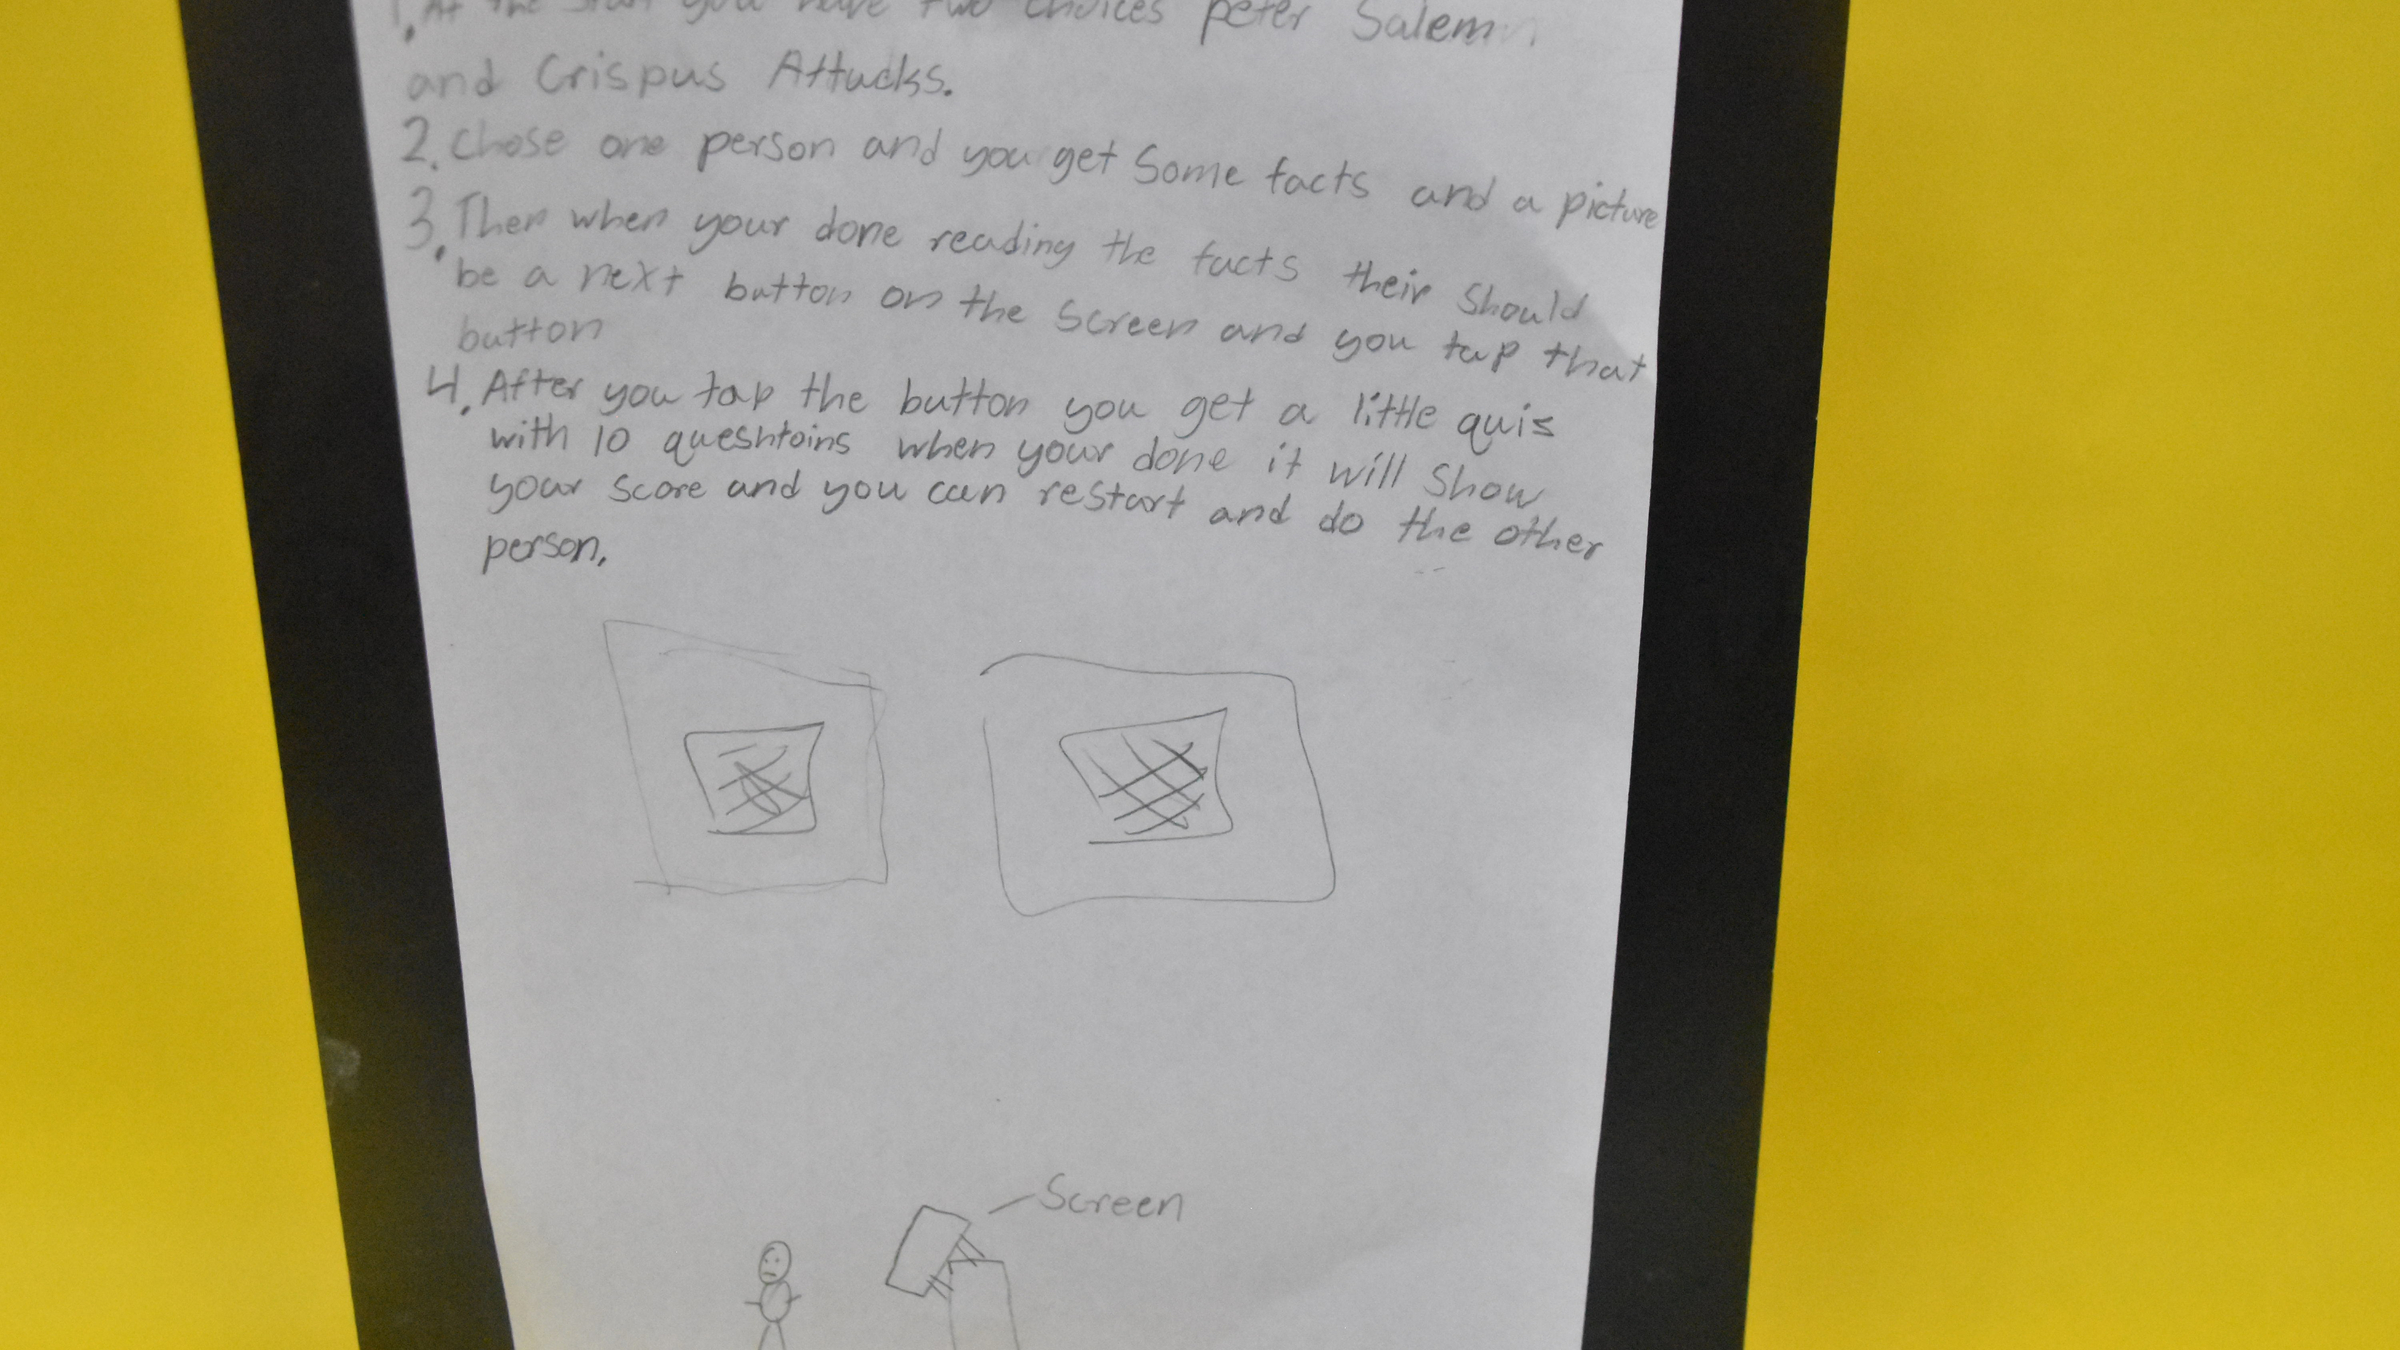 1. At the start you have two choices peter Salem
and Crispus Attucks.
2. Chose one person and you get Some facts and a picture
3. Then when your done reading the facts their Should
be a next button on the Screen and you tap that
button
4. After you tap the button you get a little quis
with 10 queshtoins when your done it will Show
your score and you can restart and do the other
person.
Screen